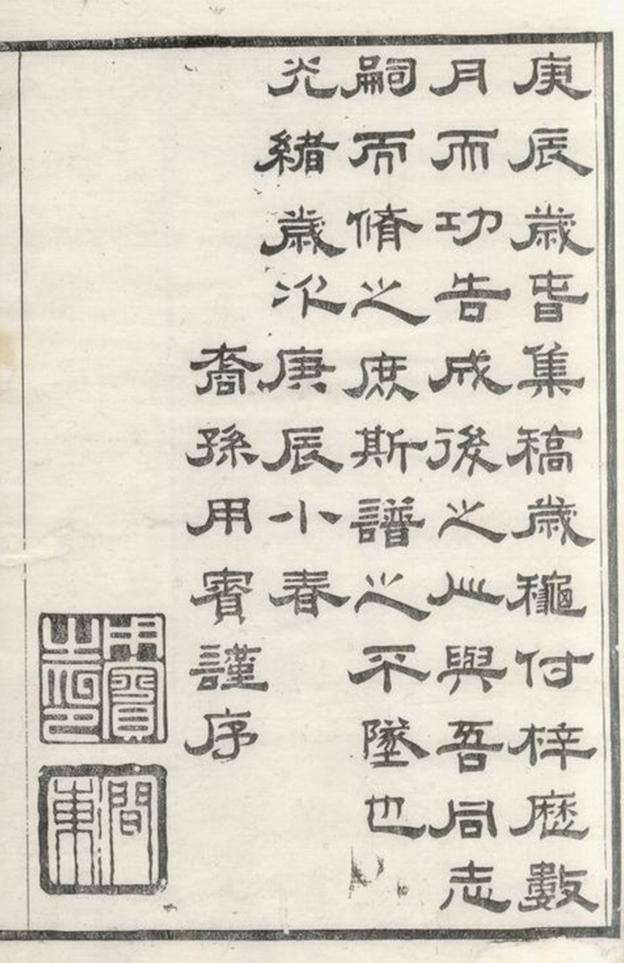 庚辰歲旾集稿歲龝付梓歷數
月而功告成後之與吾同志
嗣而脩之庶斯譜之不墜也
光緒歲次庚辰小春
裔孫用賓謹序
用賓之印
澗東